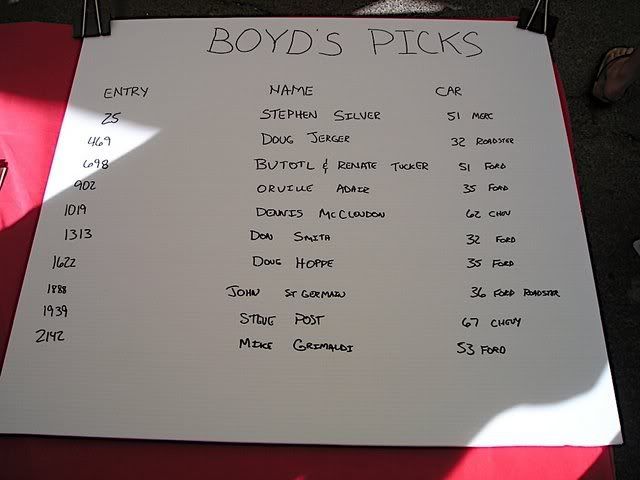 BOYD'S PICKS
ENTRY NAME CAR
25 STEPHEN SILVER 51 MERC
469 DOUG JERGER 32 ROADSTER
698 BUTOTL & RENATE TUCKER 51 FORD
902 ORVILLE ADAIR 35 FORD
1019 DENNIS MCCLENDON 62 CHEV
1313 DON SMITH 32 FORD
1622 DOUG HOPPE 35 FORD
1888 JOHN ST GERMAIN 36 FORD ROADSTER
1939 STEVE POST 67 CHEVY
2142 MIKE GRIMALDI 53 FORD